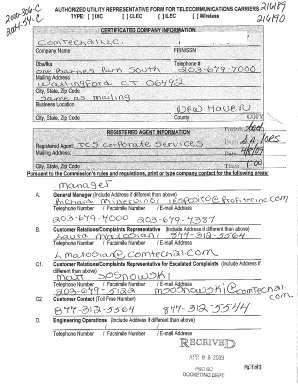 2000-206-C
2004-54-C
216189
216190
AUTHORIZED UTILITY REPRESENTATIVE FORM FOR TELECOMMUNICATIONS CARRIERS
TYPE: [ ] IXC [ ] CLEC [ ] ILEC [ ] Wireless
CERTIFICATED COMPANY INFORMATION
Comtech21 LLC
Company Name FEIN/SSN
Dba/fka Telephone #
One Barnes Park South 203-679-7000
Mailing Address
Wallingford CT 06492
City, State, Zip Code
Same as mailing
Business Location New Haven
City, State, Zip Code County
REGISTERED AGENT INFORMATION
Registered Agent TCS Corporate Services
Mailing Address
City, State, Zip Code
Pursuant to the Commission's rules and regulations, print or type company contact for the following areas:
Manager
A. General Manager (Include Address if different than above)
Telephone Number / Facsimile Number / E-mail Address
203-679-7000 203-679-7387
B. Customer Relations/Complaints Representative (Include Address if different than above)
Laura Matosian 877-312-5564
Telephone Number / Facsimile Number / E-mail Address
lmatosian@comtech21.com
C1. Customer Relations/Complaints Representative for Escalated Complaints (Include Address if different than above)
Matt Sosnowski
203-679-5122 msosnowski@comtech21.com
Telephone Number / Facsimile Number / E-mail Address
C2. Customer Contact (Toll Free Number)
877-312-5564 877-312-5544
Telephone Number / Facsimile Number / E-mail Address
D. Engineering Operations (Include Address if different than above)
Telephone Number / Facsimile Number / E-mail Address
RECEIVED
APR 08 2009
PSC SC
DOCKETING DEPT.